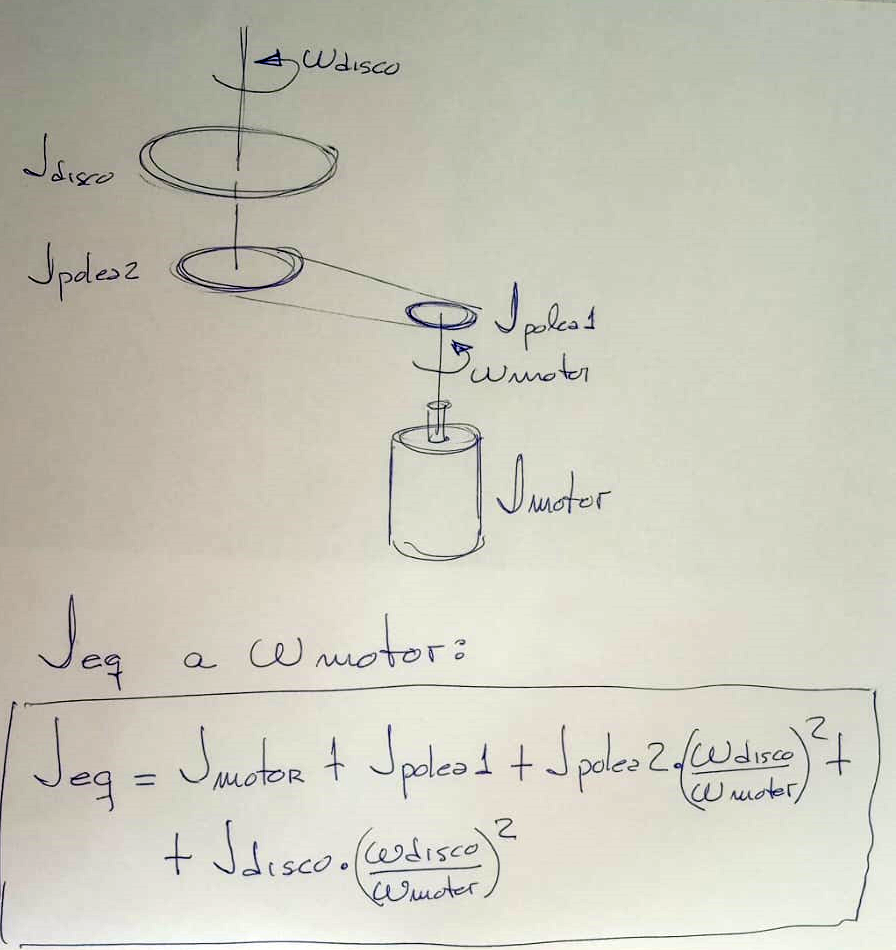 ωdisco
Jdisco
Jpolea2
Jpolea1
ωmotor
Jmotor
Jeq a ωmotor:
Jeq = JMOTOR + Jpolea1 + Jpolea2·(ωdisco/ωmotor)² +
+ JDISCO·(ωdisco/ωmotor)²